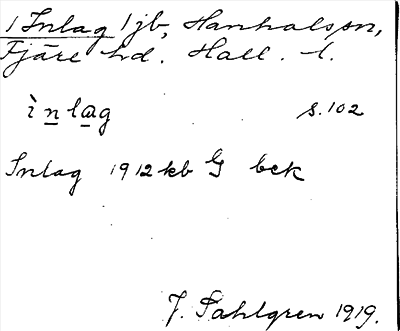 1 Inlag 1 jb, Hanhals sn,
Fjäre hd. Hall. l.
ìnlag s. 102
Inlag 1912 kb G bek
J. Sahlgren 1919.